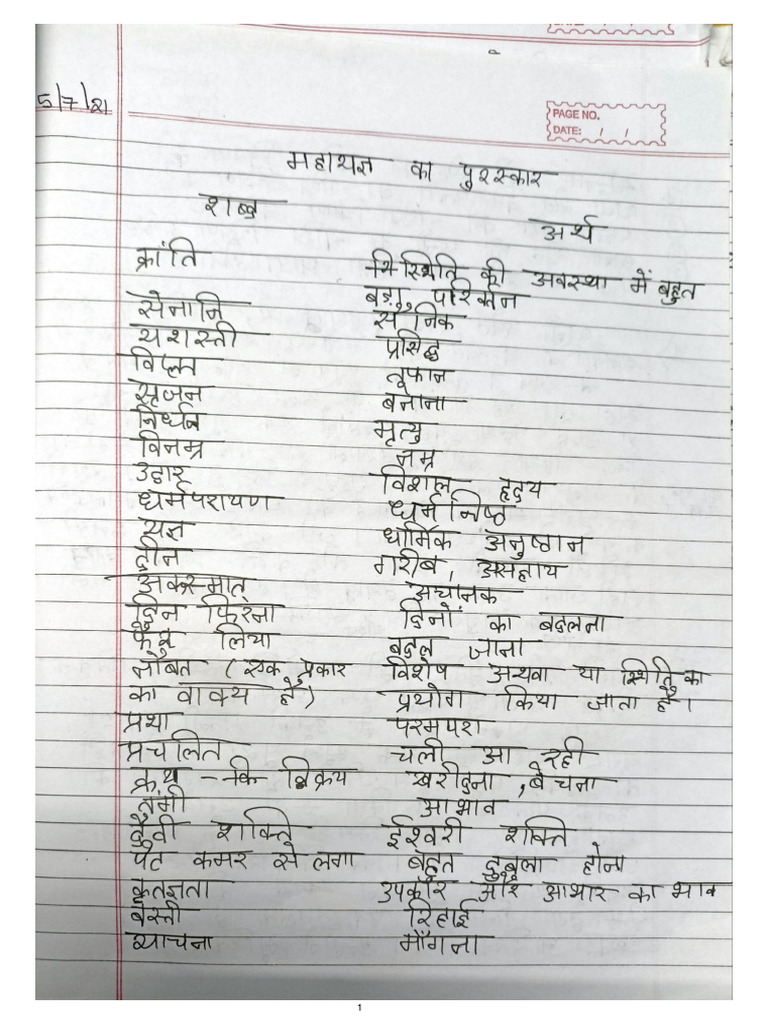 5/7/21
PAGE NO.
DATE: / /
महायज्ञ का पुरस्कार
शब्द अर्थ
क्रांति स्थिति की अवस्था में बहुत
बड़ा परिवर्तन
सेनानि सैनिक
यशस्ती प्रसिद्ध
विप्लव तूफान
सृजन बनाना
निर्धन मृत्यु
विनम्र नम्र
उद्दार विशाल हृदय
धर्मपरायण धर्म निष्ठ
यज्ञ धार्मिक अनुष्ठान
दीन गरीब, असहाय
अकस्मात् अचानक
दिन फिरना दिनों का बदलना
लिया बदल जाना
नौबत (एक प्रकार विशेष अथवा या स्थिति का
का वाक्य है) प्रयोग किया जाता है।
प्रथा परमपरा
प्रचलित चली आ रही
क्रय - वि विक्रय खरीदना, बेचना
तंगी आभाव
दैवी शक्ति ईश्वरी शक्ति
पेट कमर से लगा बहुत दुबला होना
कृतज्ञता उपकार और आभार का भाव
बस्ती रिहाई
याचना माँगना
1